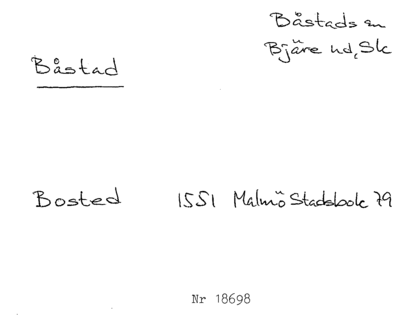 Båstads sn
Bjäre hd, Sk
Båstad
Bosted 1551 Malmö Stadsbok 79
Nr 18698